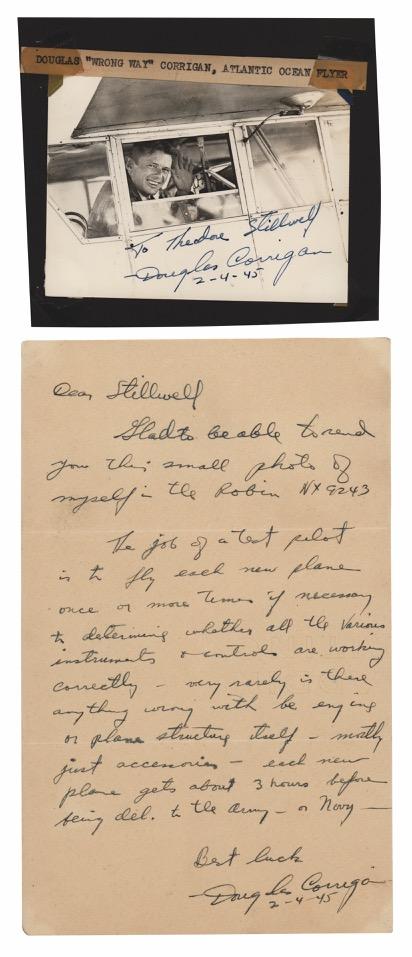 DOUGLAS "WRONG WAY" CORRIGAN, ATLANTIC OCEAN FLYER
To Theodore Stillwell
Douglas Corrigan
2-4-45
Dear Stillwell
Glad to be able to send
you this small photo of
myself in the Robin NX 9243
The job of a test pilot
is to fly each new plane
once or more times if necessary
to determine whether all the various
instruments & controls are working
correctly - very rarely is there
anything wrong with the engine
or plane structure itself - mostly
just accessories - each new
plane gets about 3 hours before
being del. to the Army - or Navy -
Best luck
Douglas Corrigan
2-4-45